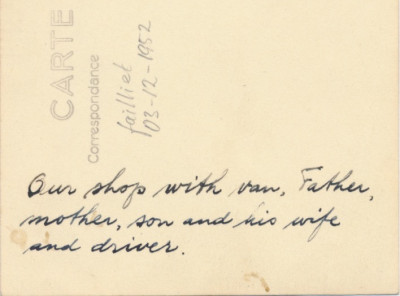 CARTE
Correspondance
failliet
03-12-1952
Our shop with van, Father,
mother, son and his wife
and driver.